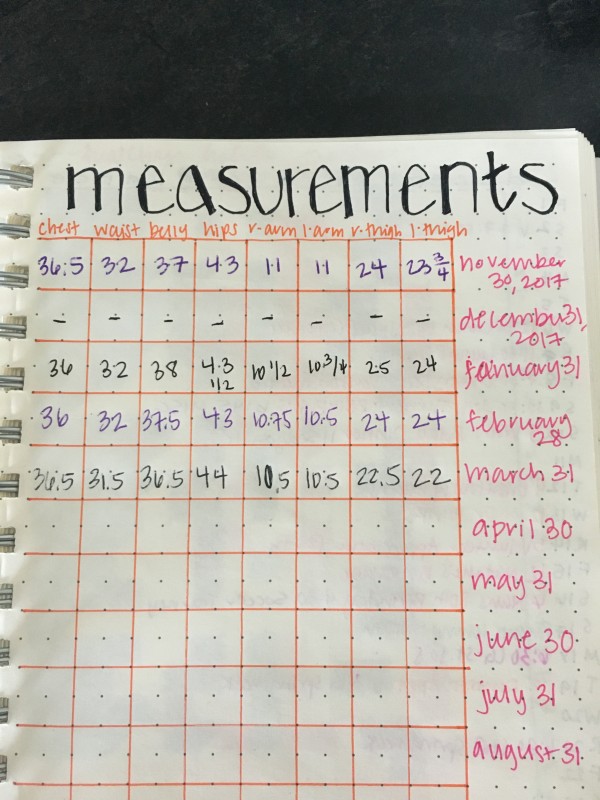 measurements
chest waist belly hips r-arm l-arm r-thigh l-thigh
36.5 32 37 43 11 11 24 23 3/4 november
30, 2017
- - - - - - - - december 31,
2017
36 32 38 43 1/2 10 1/2 10 3/4 25 24 january 31
36 32 37.5 43 10.75 10.5 24 24 february
28
36.5 31.5 36.5 44 10.5 10.5 22.5 22 march 31
april 30
may 31
june 30
july 31
august 31